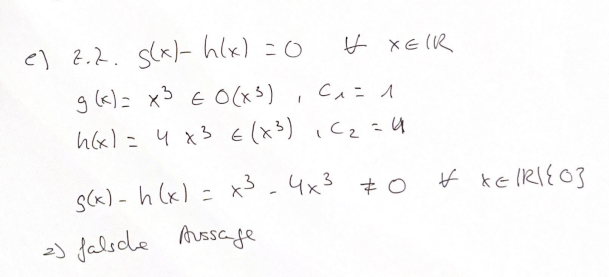 e) z.z. g(x) - h(x) = 0 ∀ x ∈ ℝ
g(x) = x³ ∈ O(x³) , C₁ = 1
h(x) = 4x³ ∈ (x³) , C₂ = 4
g(x) - h(x) = x³ - 4x³ ≠ 0 ∀ x ∈ ℝ\{0}
=> falsche Aussage